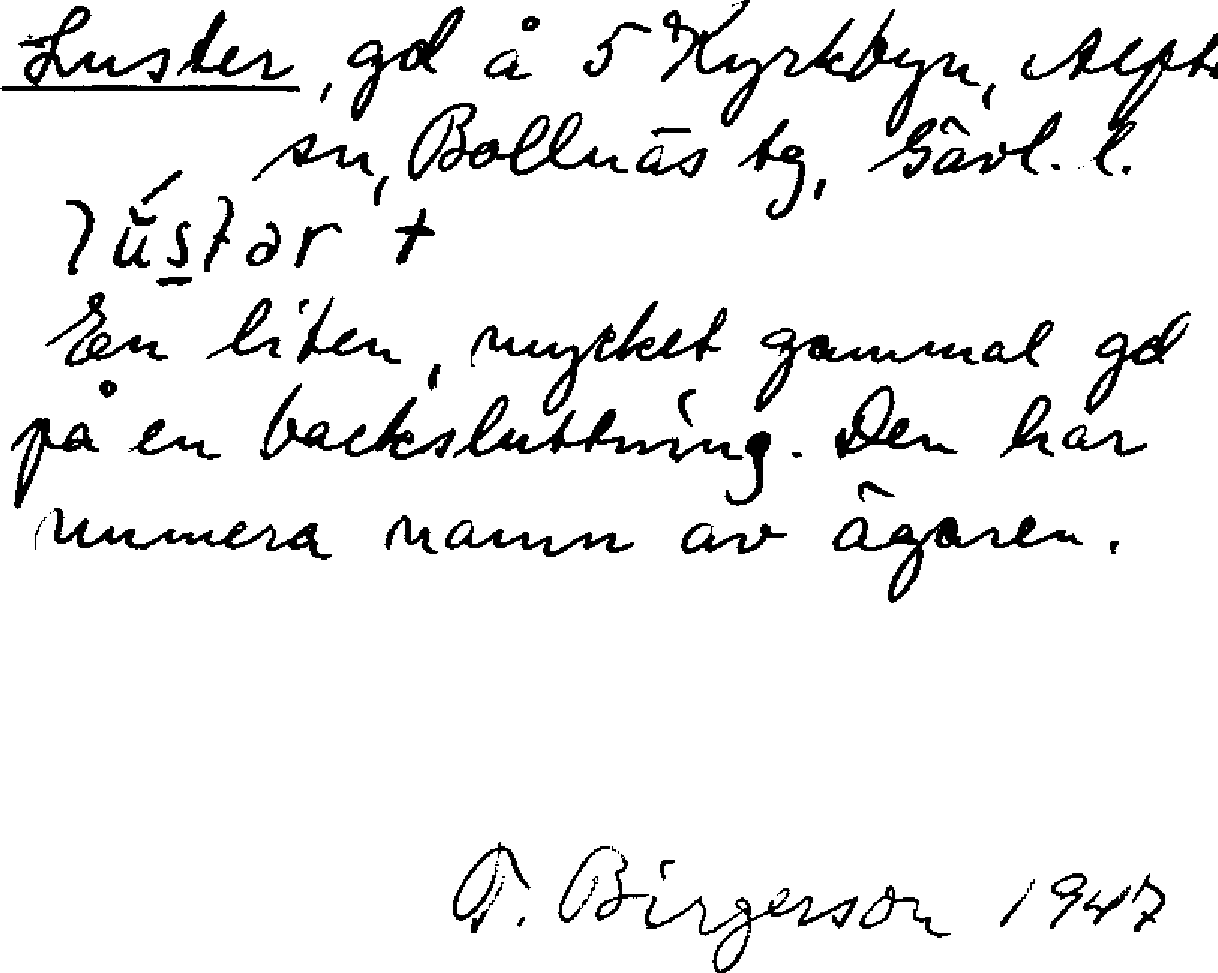 Luster, gd å 5 Kyrkbyn, Alfta
sn, Bollnäs tg, Gävl. l.
En liten, mycket gammal gd
på en backsluttning. Den har
numera namn av ägaren.
T. Birgerson 1947